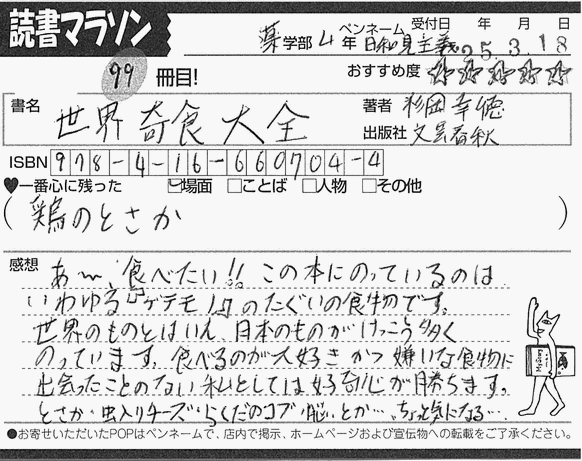 読書マラソン
ペンネーム 受付日 年 月 日
薬学部4年 日和見主義 25.3.18
99冊目!
おすすめ度 ☆☆☆☆☆
書名 世界奇食大全
著者 杉岡幸徳
出版社 文芸春秋
ISBN 978-4-16-660704-4
♥一番心に残った ☑場面 □ことば □人物 □その他
(鶏のとさか)
感想 あ〜、食べたい!! この本にのっているのは
いわゆる『ゲテモノ』のたぐいの食物です。
世界のものとはいえ、日本のものがけっこう多く
のっています。食べるのが大好きかつ嫌いな食物に
出会ったことのない私としては好奇心が勝ちます。
とさか・虫入りチーズ・らくだのコブ・脳、とか…、ちょっと気になる…
●お寄せいただいたPOPはペンネームで、店内で掲示、ホームページおよび宣伝物への転載をご了承ください。